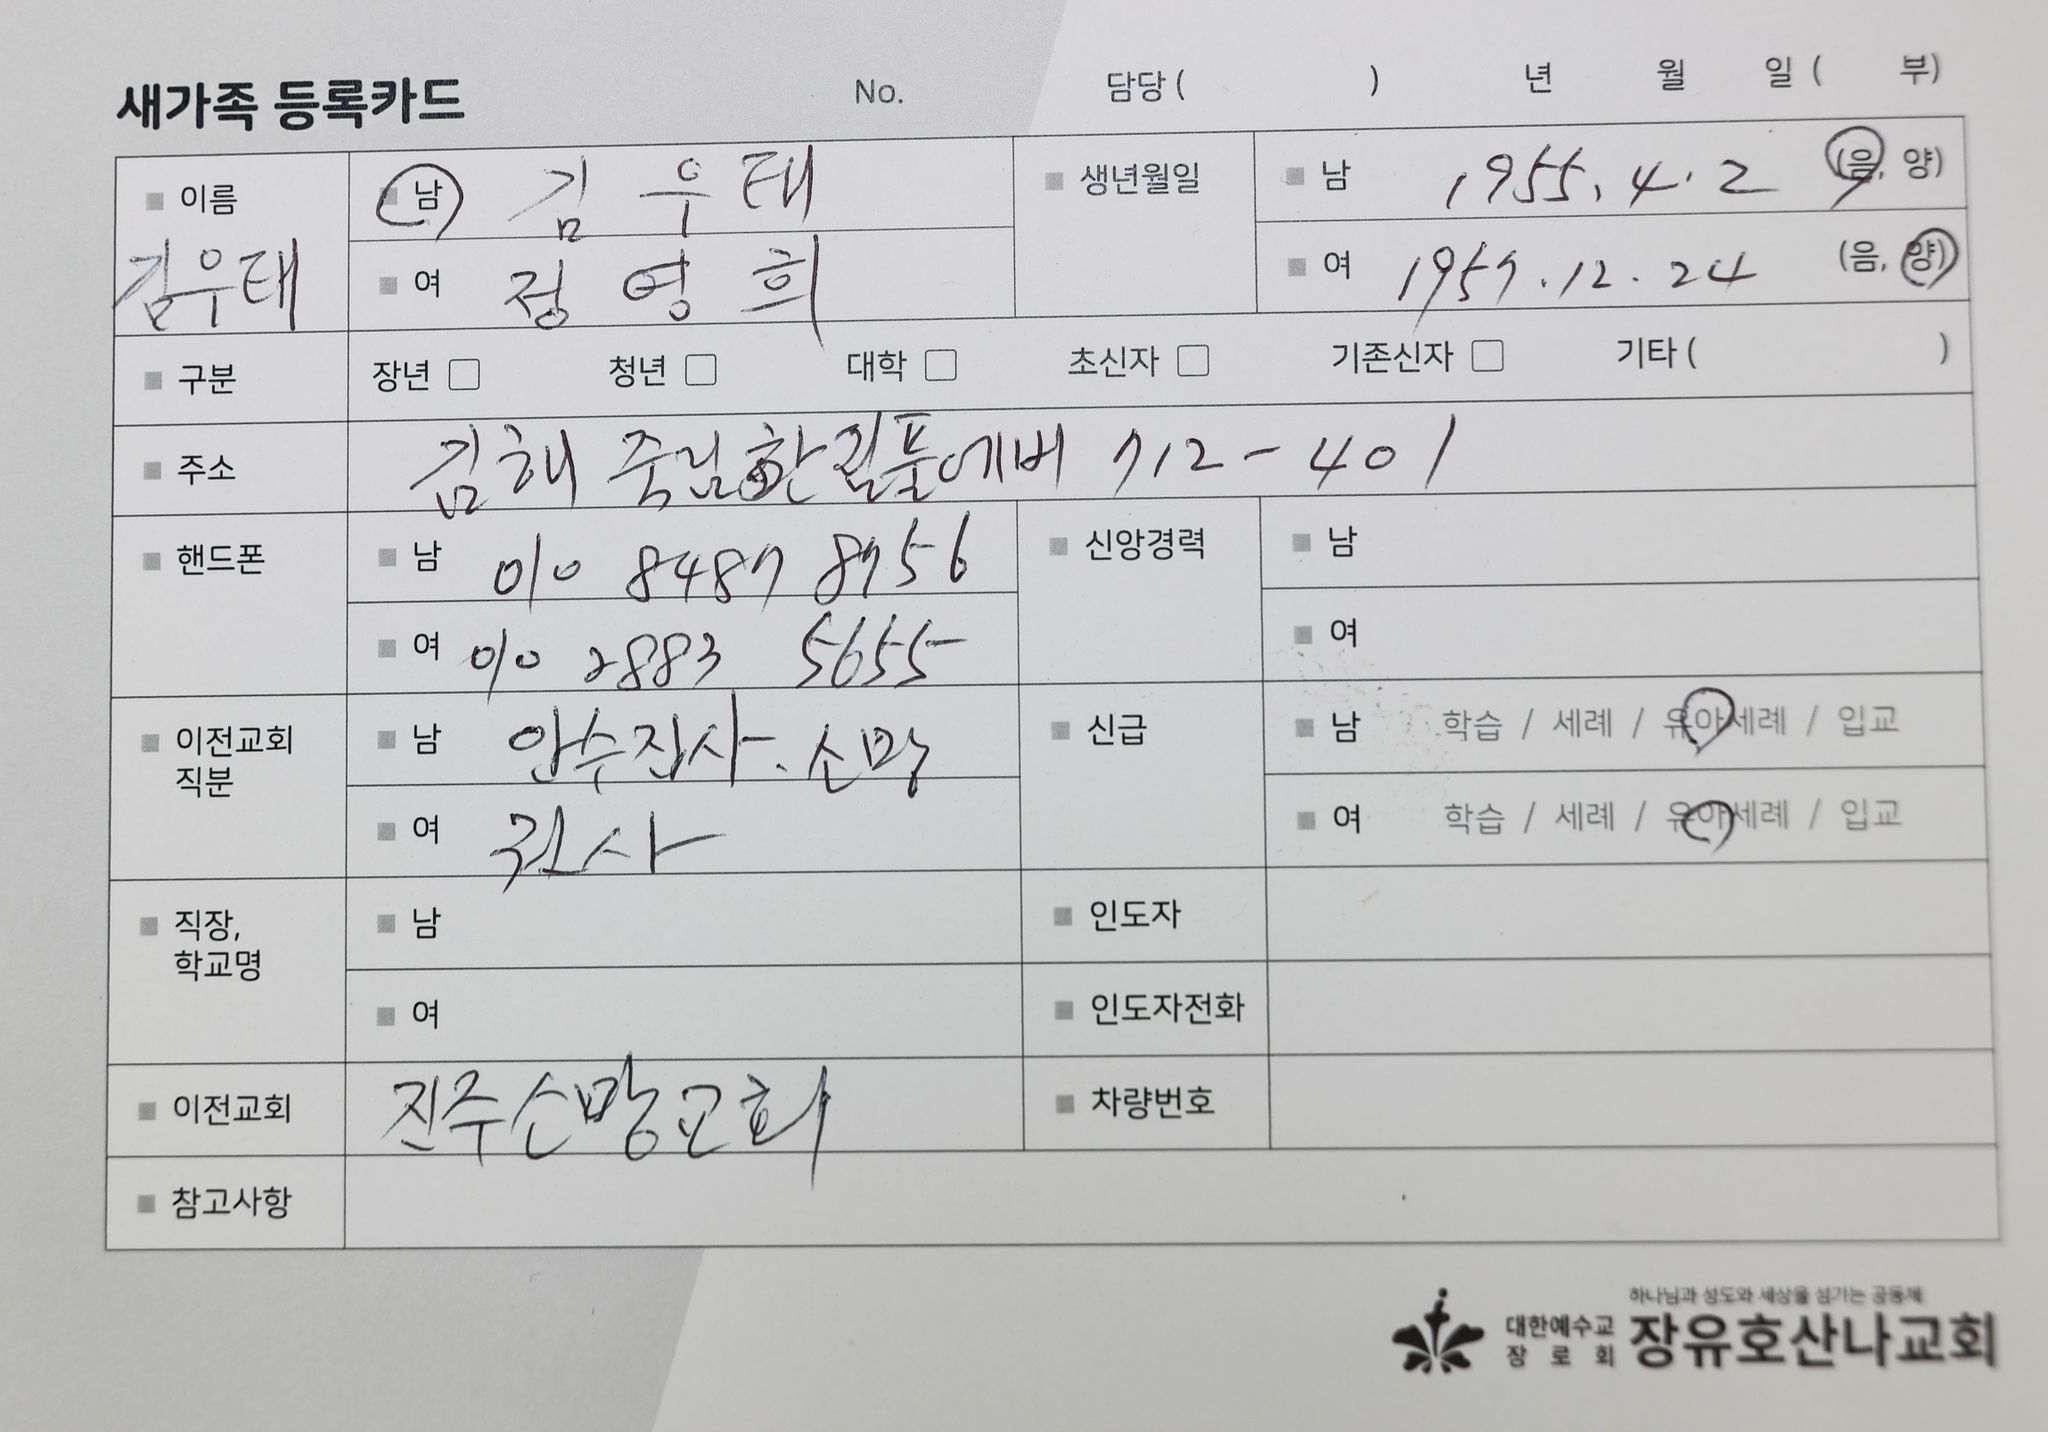 새가족 등록카드 No. 담당 ( ) 년 월 일 ( 부)
이름 남 김우태 생년월일 남 1955. 4. 2 (음, 양)
김우태 여 정영희 여 1957. 12. 24 (음, 양)
구분 장년 □ 청년 □ 대학 □ 초신자 □ 기존신자 □ 기타 ( )
주소 김해 죽림한림풀에버 712-401
핸드폰 남 010 8487 8756 신앙경력 남
여 010 2883 5655 여
이전교회 직분 남 안수집사. 소망 신급 남 학습 / 세례 / 유아세례 / 입교
여 권사 여 학습 / 세례 / 유아세례 / 입교
직장, 학교명 남 인도자
여 인도자전화
이전교회 진주소망교회 차량번호
참고사항
하나님과 성도와 세상을 섬기는 공동체
대한예수교 장로회 장유호산나교회